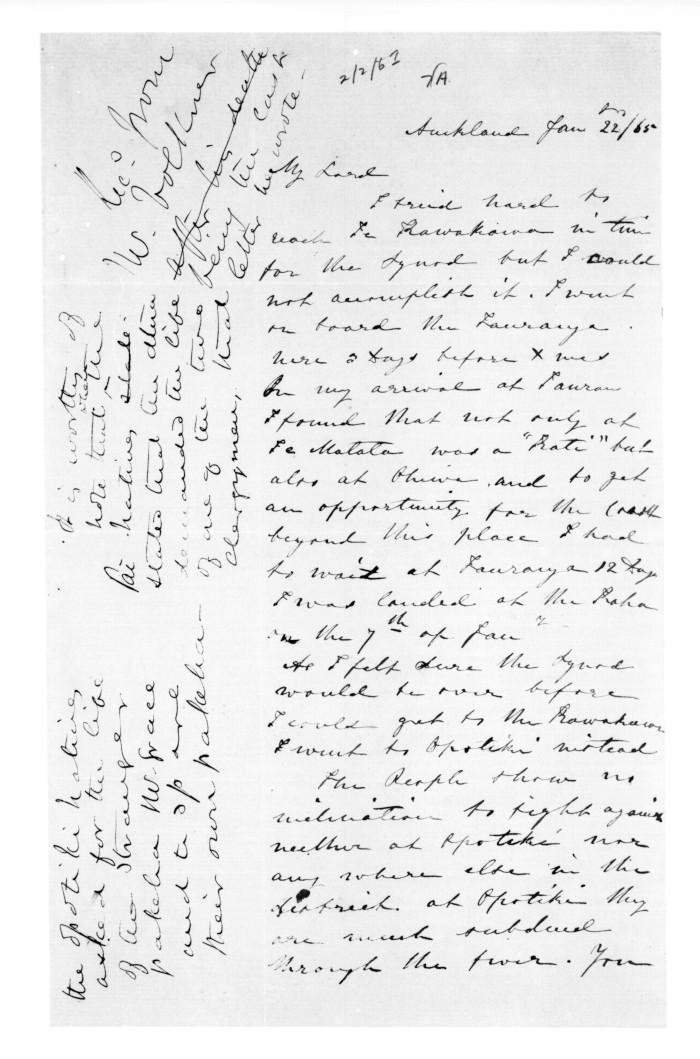 2/2/63
Auckland Jan 22/65
My Lord
I tried hard to
reach Te Kawakawa in time
for the Synod but I could
not acomplish it. I went
on board the Tauranga
here 3 Days before Xmas
On my arrival at Tauran
I found that not only at
Te Matata was a "Kati" but
also at Ohiwa and to get
an opportunity for the Coast
beyond this place I had
to wait at Tauranga 12 Days
I was landed at the Kaha
on the 7th of Jany
As I felt sure the Synod
would be over before
I could get to the Kawakawa
I went to Opotiki instead
The People show no
inclination to fight again
neither at Opotiki nor
any where else in the
District. at Opotiki they
are much subdued
through the fever. You
Recd from
Mr. Volkner
after his death
being the last
letter he wrote.
It is worthy of
note that the
Pai natives
stated that the
demanded the life
of one of the two
Clergymen, that
the Opotiki natives
asked for the life
of the Stranger
pakeha Mr. Grace
and to spare
their own pakeha